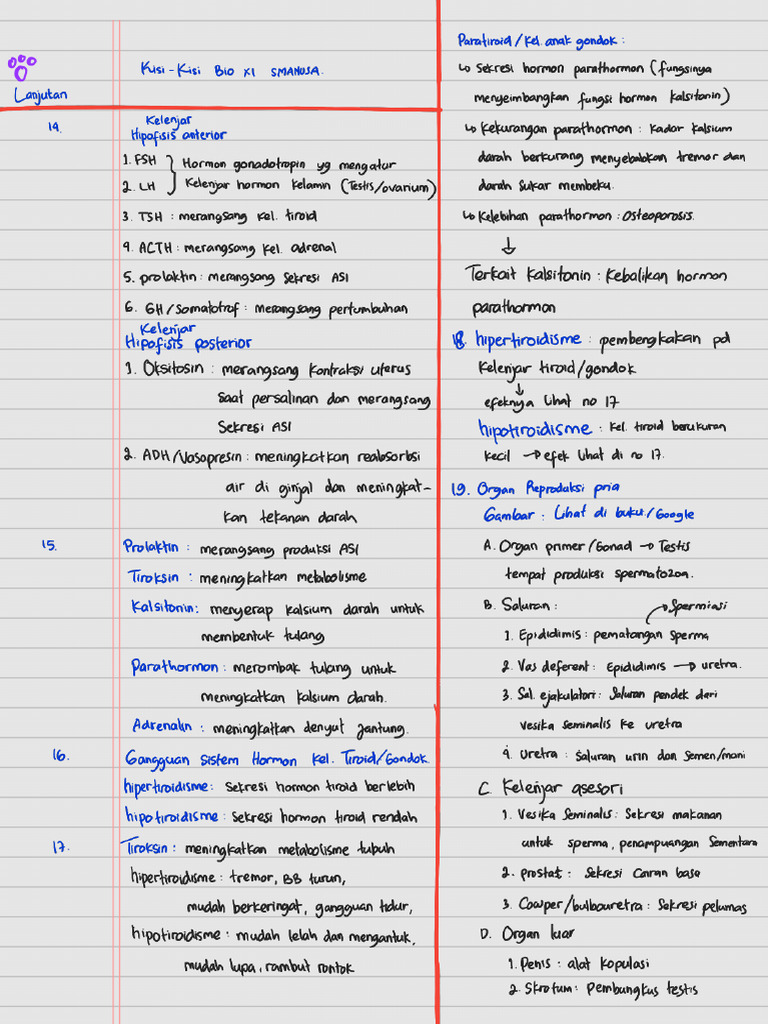 Kisi-Kisi Bio XI SMANUSA.
Lanjutan
14.
Kelenjar
Hipofisis anterior
1. FSH } Hormon gonadotropin yg mengatur
2. LH } Kelenjar hormon kelamin (Testis/ovarium)
3. TSH : merangsang kel. tiroid
4. ACTH : merangsang kel. adrenal
5. prolaktin : merangsang sekresi ASI
6. GH/Somatotrof : merangsang pertumbuhan
Kelenjar
Hipofisis posterior
1. Oksitosin : merangsang kontraksi uterus
saat persalinan dan merangsang
Sekresi ASI
2. ADH/Vasopresin : meningkatkan reabsorbsi
air di ginjal dan meningkat-
kan tekanan darah
15. Prolaktin : merangsang produksi ASI
Tiroksin : meningkatkan metabolisme
Kalsitonin : menyerap kalsium darah untuk
membentuk tulang
Parathormon : merombak tulang untuk
meningkatkan kalsium darah.
Adrenalin : meningkatkan denyut jantung.
16. Gangguan Sistem Hormon Kel. Tiroid/Gondok.
hipertiroidisme : sekresi hormon tiroid berlebih
hipotiroidisme : sekresi hormon tiroid rendah
17. Tiroksin : meningkatkan metabolisme tubuh
hipertiroidisme : tremor, BB turun,
mudah berkeringat, gangguan tidur,
hipotiroidisme : mudah lelah dan mengantuk,
mudah lupa, rambut rontok
Paratiroid/Kel. anak gondok :
↳ Sekresi hormon parathormon (fungsinya
menyeimbangkan fungsi hormon kalsitonin)
↳ Kekurangan parathormon : kadar kalsium
darah berkurang menyebabkan tremor dan
darah sukar membeku.
↳ Kelebihan parathormon : Osteoporosis.
↓
Terkait Kalsitonin : Kebalikan hormon
parathormon
18. hipertiroidisme : pembengkakan pd
Kelenjar tiroid/gondok
↓
efeknya lihat no 17
hipotiroidisme : kel. tiroid berukuran
kecil → efek lihat di no 17.
19. Organ Reproduksi pria
Gambar : Lihat di buku/Google
A. Organ primer/Gonad → Testis
tempat produksi spermatozoa.
B. Saluran :
→ Spermiasi
1. Epididimis : pematangan sperma
2. Vas deferent : Epididimis → uretra.
3. Sal. ejakulatori : Saluran pendek dari
vesika seminalis ke uretra
4. Uretra : saluran urin dan semen/mani
C. Kelenjar asesori
1. Vesika Seminalis : Sekresi makanan
untuk sperma, penampuangan Sementara
2. prostat : Sekresi Cairan basa
3. Cowper/bulbouretra : Sekresi pelumas
D. Organ luar
1. Penis : alat kopulasi
2. Skrotum : Pembungkus testis